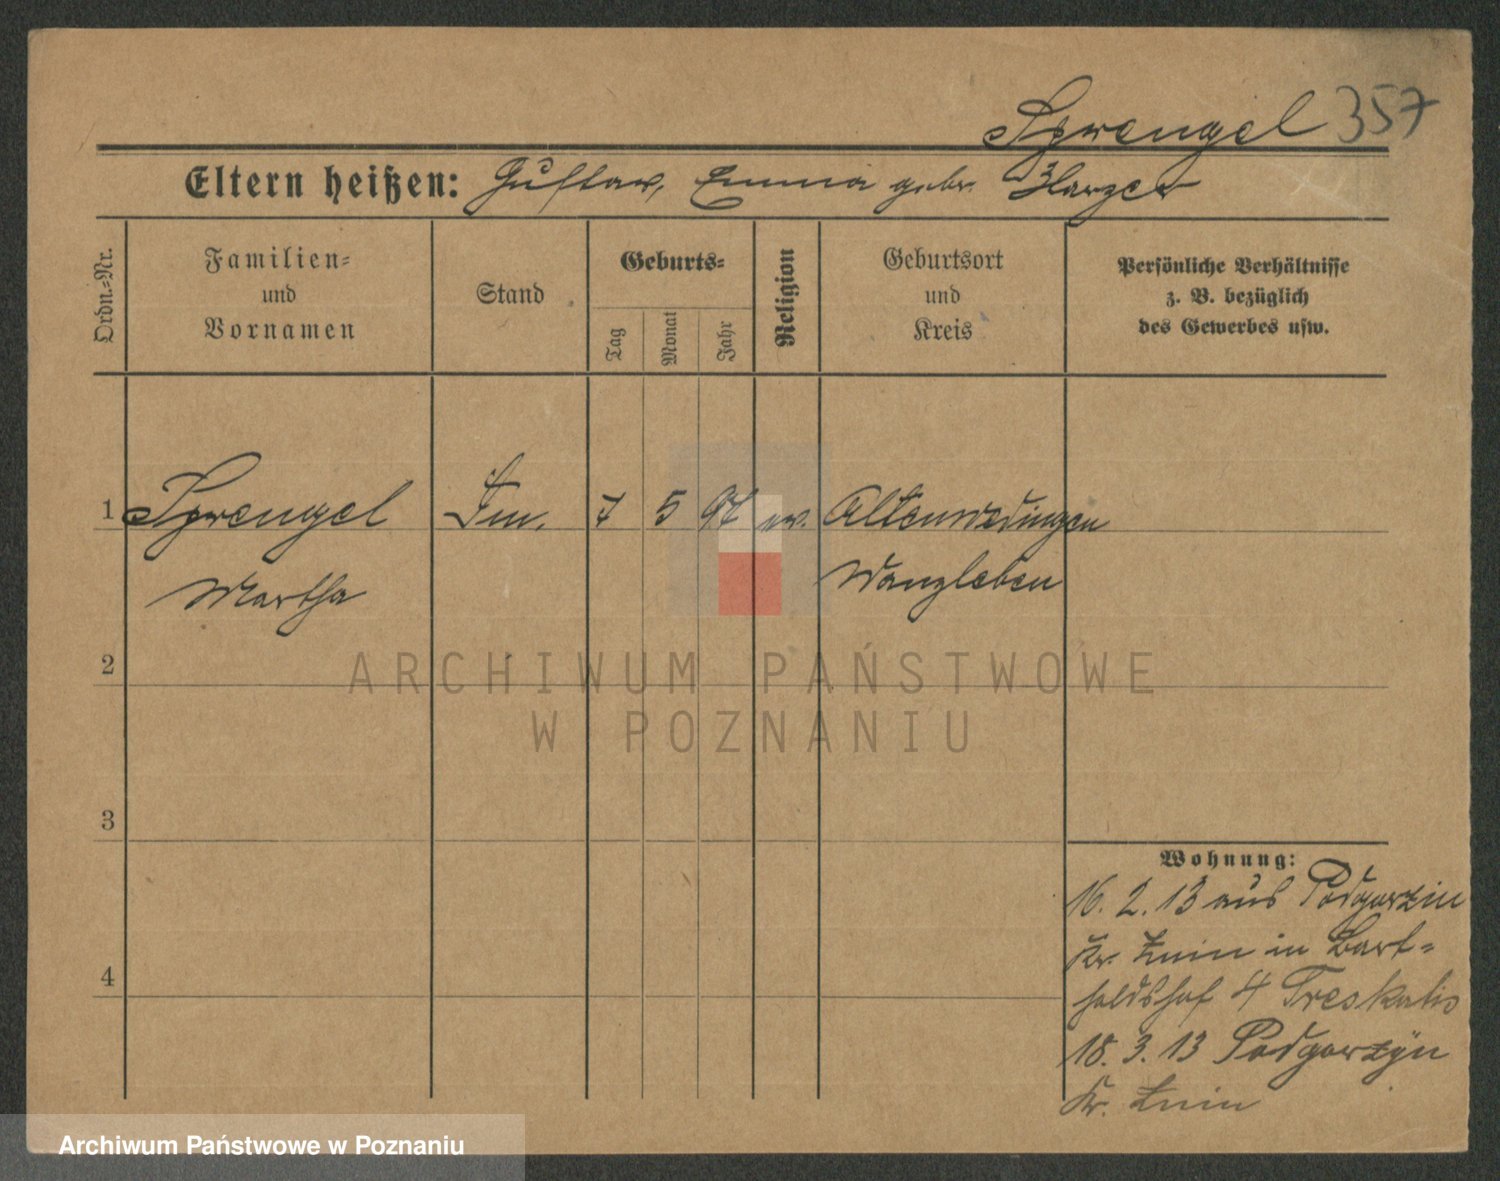 Sprengel 357
Eltern heißen: Gustav, Emma gebr. Harzer
Ordn.=Nr.
Familien=
und
Vornamen
Stand
Geburts=
Tag
Monat
Jahr
Religion
Geburtsort
und
Kreis
Persönliche Verhältnisse
z. B. bezüglich
des Gewerbes usw.
1 Sprengel 7 5 97 ev. Altenwedingen
Martha Wanzleben
2
3
4
Wohnung:
16. 2. 13 aus Podgorzin
Kr. Znin in Bart=
holdshof 4 Treskalis
18. 3. 13 Podgorzÿn
Kr. Znin
ARCHIWUM PAŃSTWOWE
W POZNANIU
Archiwum Państwowe w Poznaniu